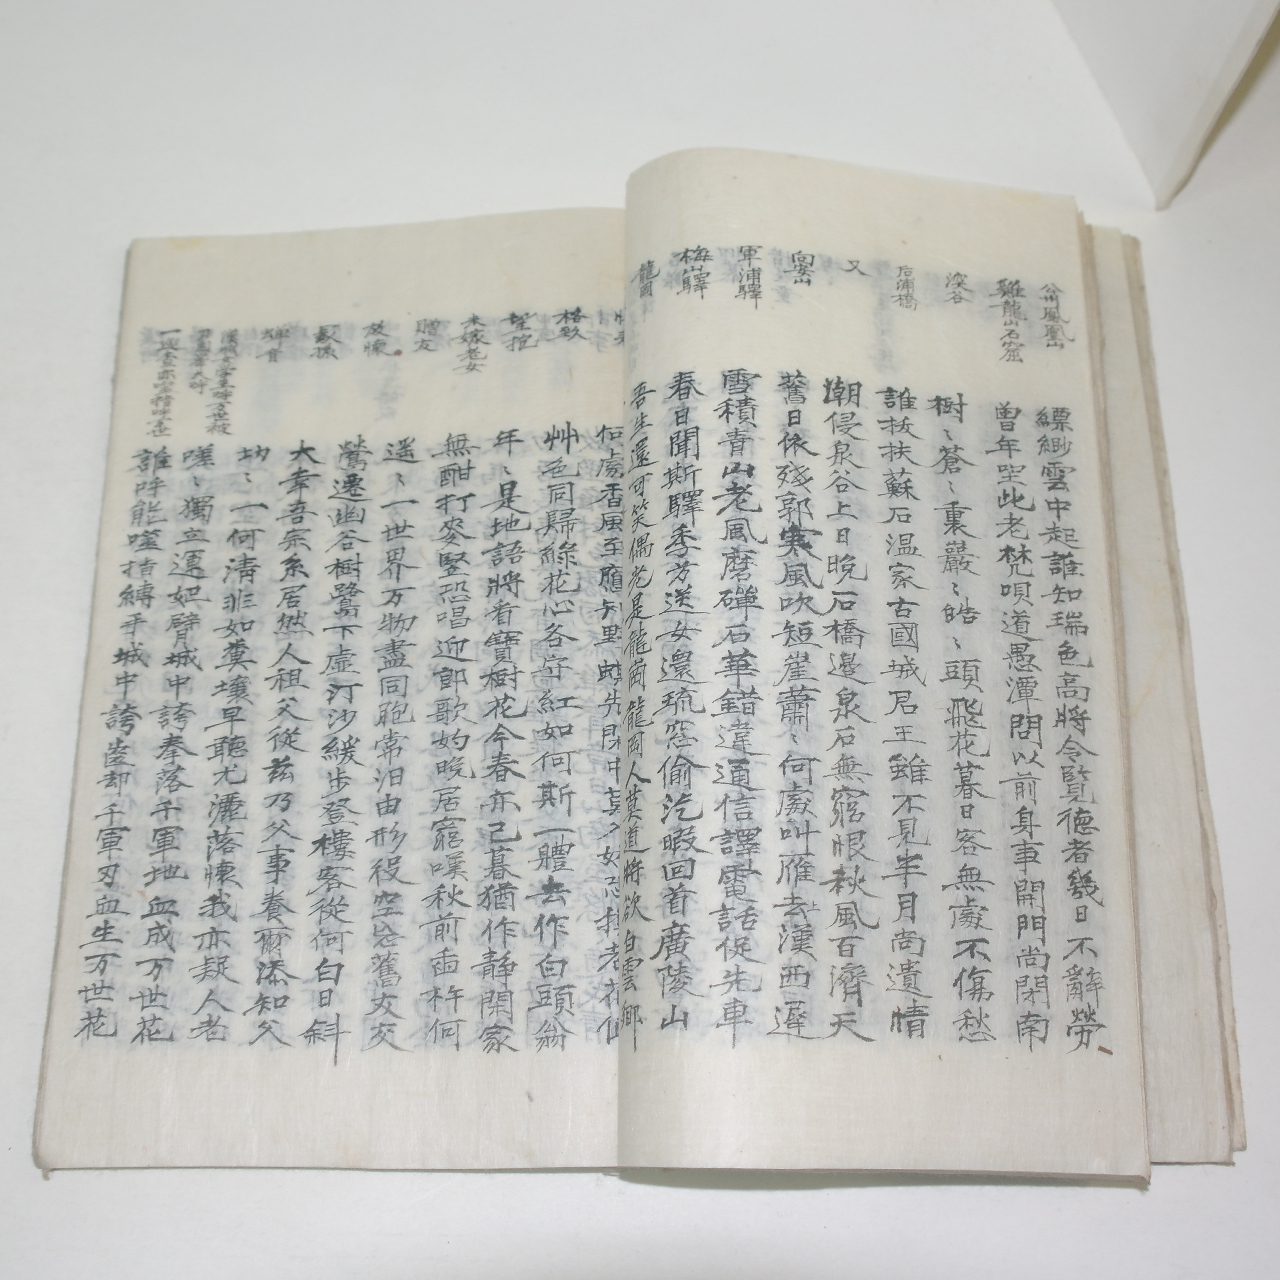 公州鳳凰山
縹緲雲中起誰知瑞色高將令覽德者幾日不辭勞
雞龍山石窟
曾年坐此老梵唄道愚潭問以前身事開門尚閉南
溪谷
樹〻蒼〻裏巖〻皓〻頭飛花暮日客無處不傷愁
石浦橋
誰拔扶蘇石溫家古國城君王雖不見半月尚遺情
又
潮侵泉谷上日晚石橋邊泉石無窮恨秋風百濟天
向安山
舊日依殘郭寒風吹短崖蕭〻何處叫雁去漢西遲
軍浦驛
雪積青山老風磨礴石華錯違通信譯電話促先車
梅山驛
春日聞斯驛季方送女還琉窓偷汔暇回首廣陵山
龍岡
吾生還可笑偶老是龍崗龍岡人莫道將欲白雲鄉
何處香風至
格致
艸色同歸綠花心各守紅如何斯一體去作白頭翁
望棺
年〻是地語將看寶樹花今春亦已暮猶作靜閑家
未嫁老女
無酣打麥堅恐唱迎郎歌妁晚居窮嘆秋前面杵何
贈友
遥〻一世界万物盡同胞常汨由形役空忘舊友交
放懷
鶯遷幽谷樹鷺下虛汀沙緩步登樓客從何白日斜
大幸吾宗系居然人祖父從茲乃父事養爾添知父
坳〻一何淸非如糞壤早聽尤灑落悚我亦疑人者
嗟〻獨立還妃臂城中誇奉落千軍地血成万世花
誰呼能噬指縛手城中誇崖却千軍刃血生万世花